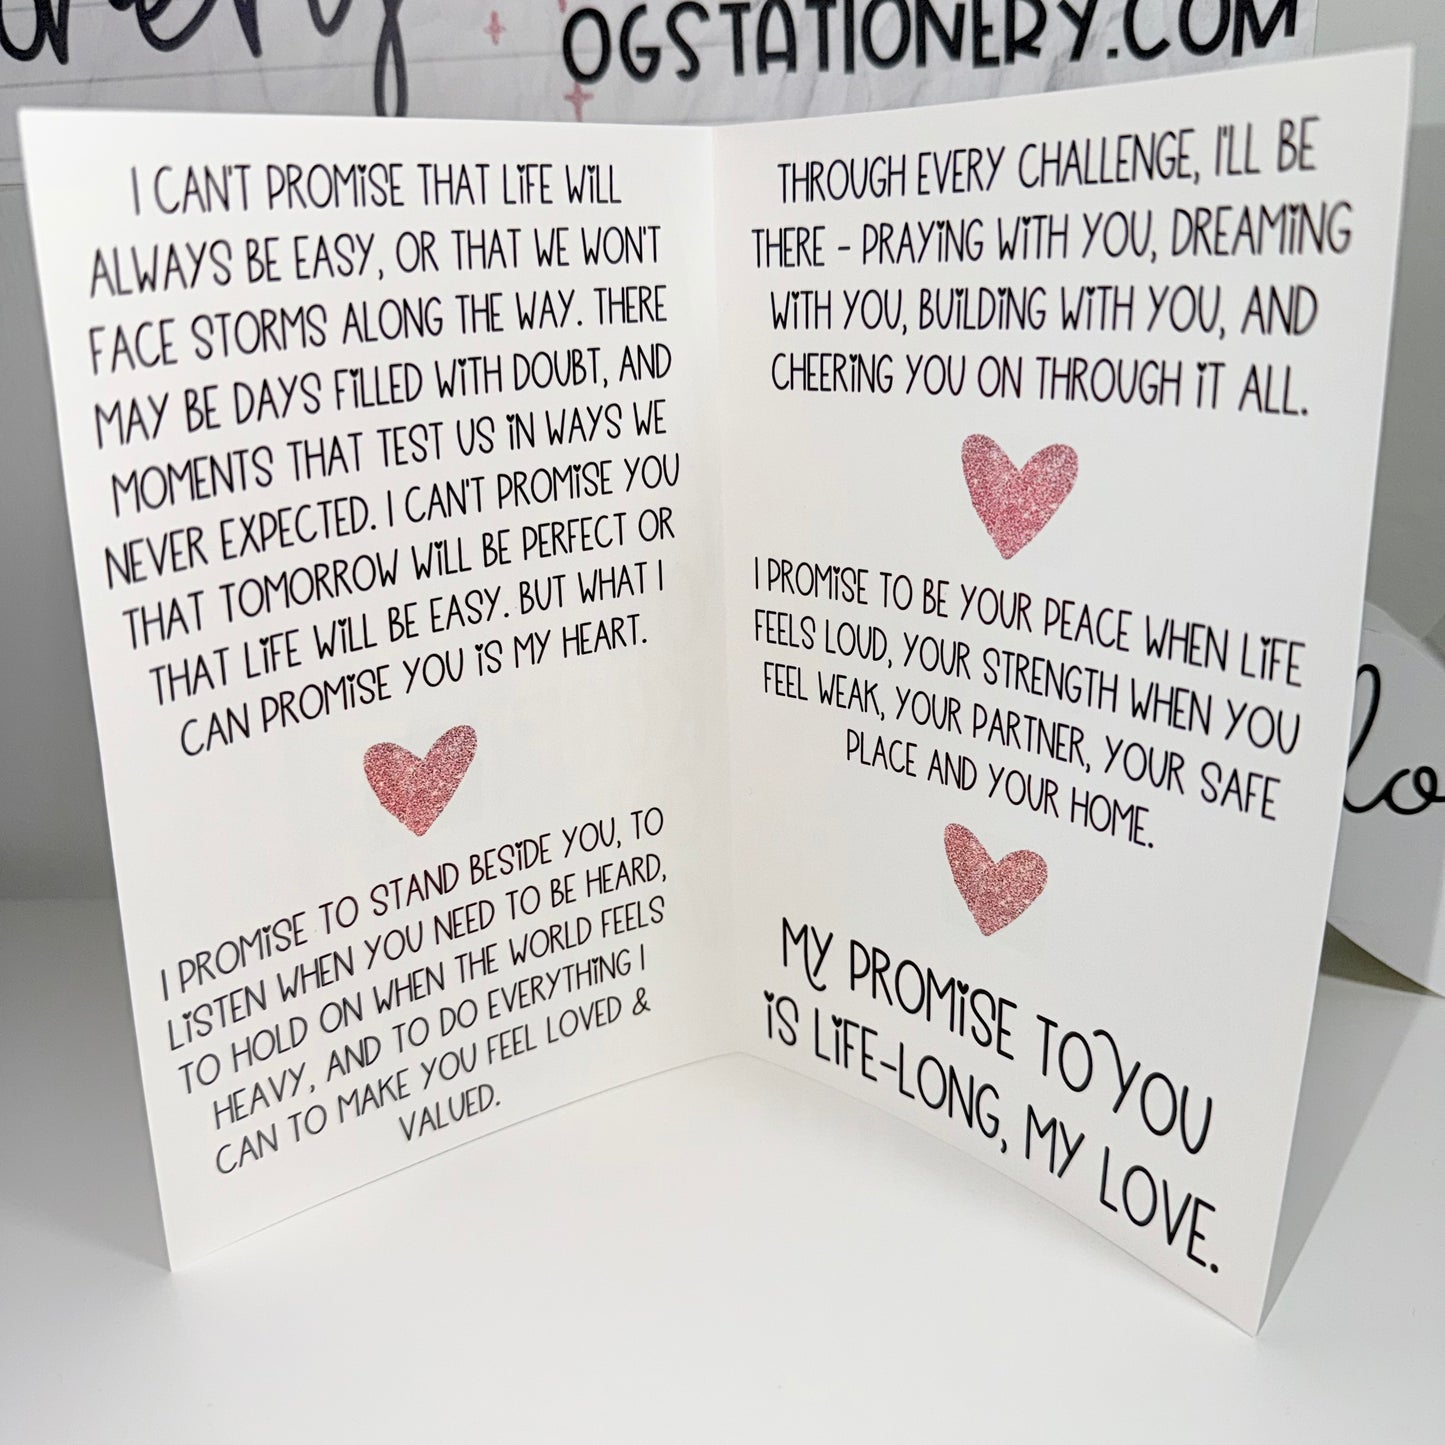 OGSTATIONERY.COM
I CAN'T PROMISE THAT LIFE WILL
ALWAYS BE EASY, OR THAT WE WON'T
FACE STORMS ALONG THE WAY. THERE
MAY BE DAYS FILLED WITH DOUBT, AND
MOMENTS THAT TEST US IN WAYS WE
NEVER EXPECTED. I CAN'T PROMISE YOU
THAT TOMORROW WILL BE PERFECT OR
THAT LIFE WILL BE EASY. BUT WHAT I
CAN PROMISE YOU IS MY HEART.
I PROMISE TO STAND BESIDE YOU, TO
LISTEN WHEN YOU NEED TO BE HEARD,
TO HOLD ON WHEN THE WORLD FEELS
HEAVY, AND TO DO EVERYTHING I
CAN TO MAKE YOU FEEL LOVED &
VALUED.
THROUGH EVERY CHALLENGE, I'LL BE
THERE - PRAYING WITH YOU, DREAMING
WITH YOU, BUILDING WITH YOU, AND
CHEERING YOU ON THROUGH IT ALL.
I PROMISE TO BE YOUR PEACE WHEN LIFE
FEELS LOUD, YOUR STRENGTH WHEN YOU
FEEL WEAK, YOUR PARTNER, YOUR SAFE
PLACE AND YOUR HOME.
MY PROMISE TO YOU
IS LIFE-LONG, MY LOVE.